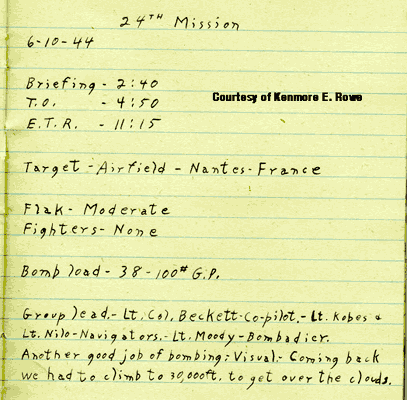 24TH Mission
6-10-44
Briefing - 2:40
Courtesy of Kenmore E. Rowe
T.O. - 4:50
E.T.R. - 11:15
Target - Airfield - Nantes - France
Flak - Moderate
Fighters - None
Bomb load - 38 - 100# G.P.
Group lead. - Lt. Col. Beckett - Co-pilot. - Lt. Kobes &
Lt. Nilo - Navigators. - Lt. Moody - Bombadier.
Another good job of bombing; Visual. - Coming back
we had to climb to 30,000ft. to get over the clouds.